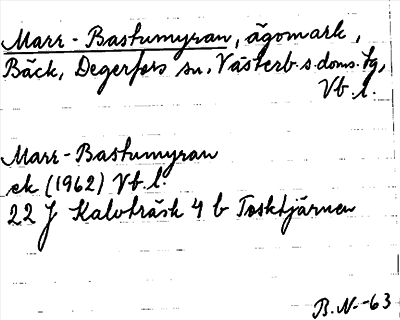 Marr-Bastumyran, ägomark,
Bäck, Degerfors sn, Västerb.s.doms. tg,
Vb.l.
Marr-Bastumyran
ek (1962) Vb.l.
22 J Kalvträsk 4 b Tosktjärnen
B.N.-63